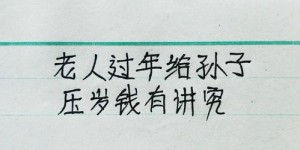 老人过年给孙子
压岁钱有讲究